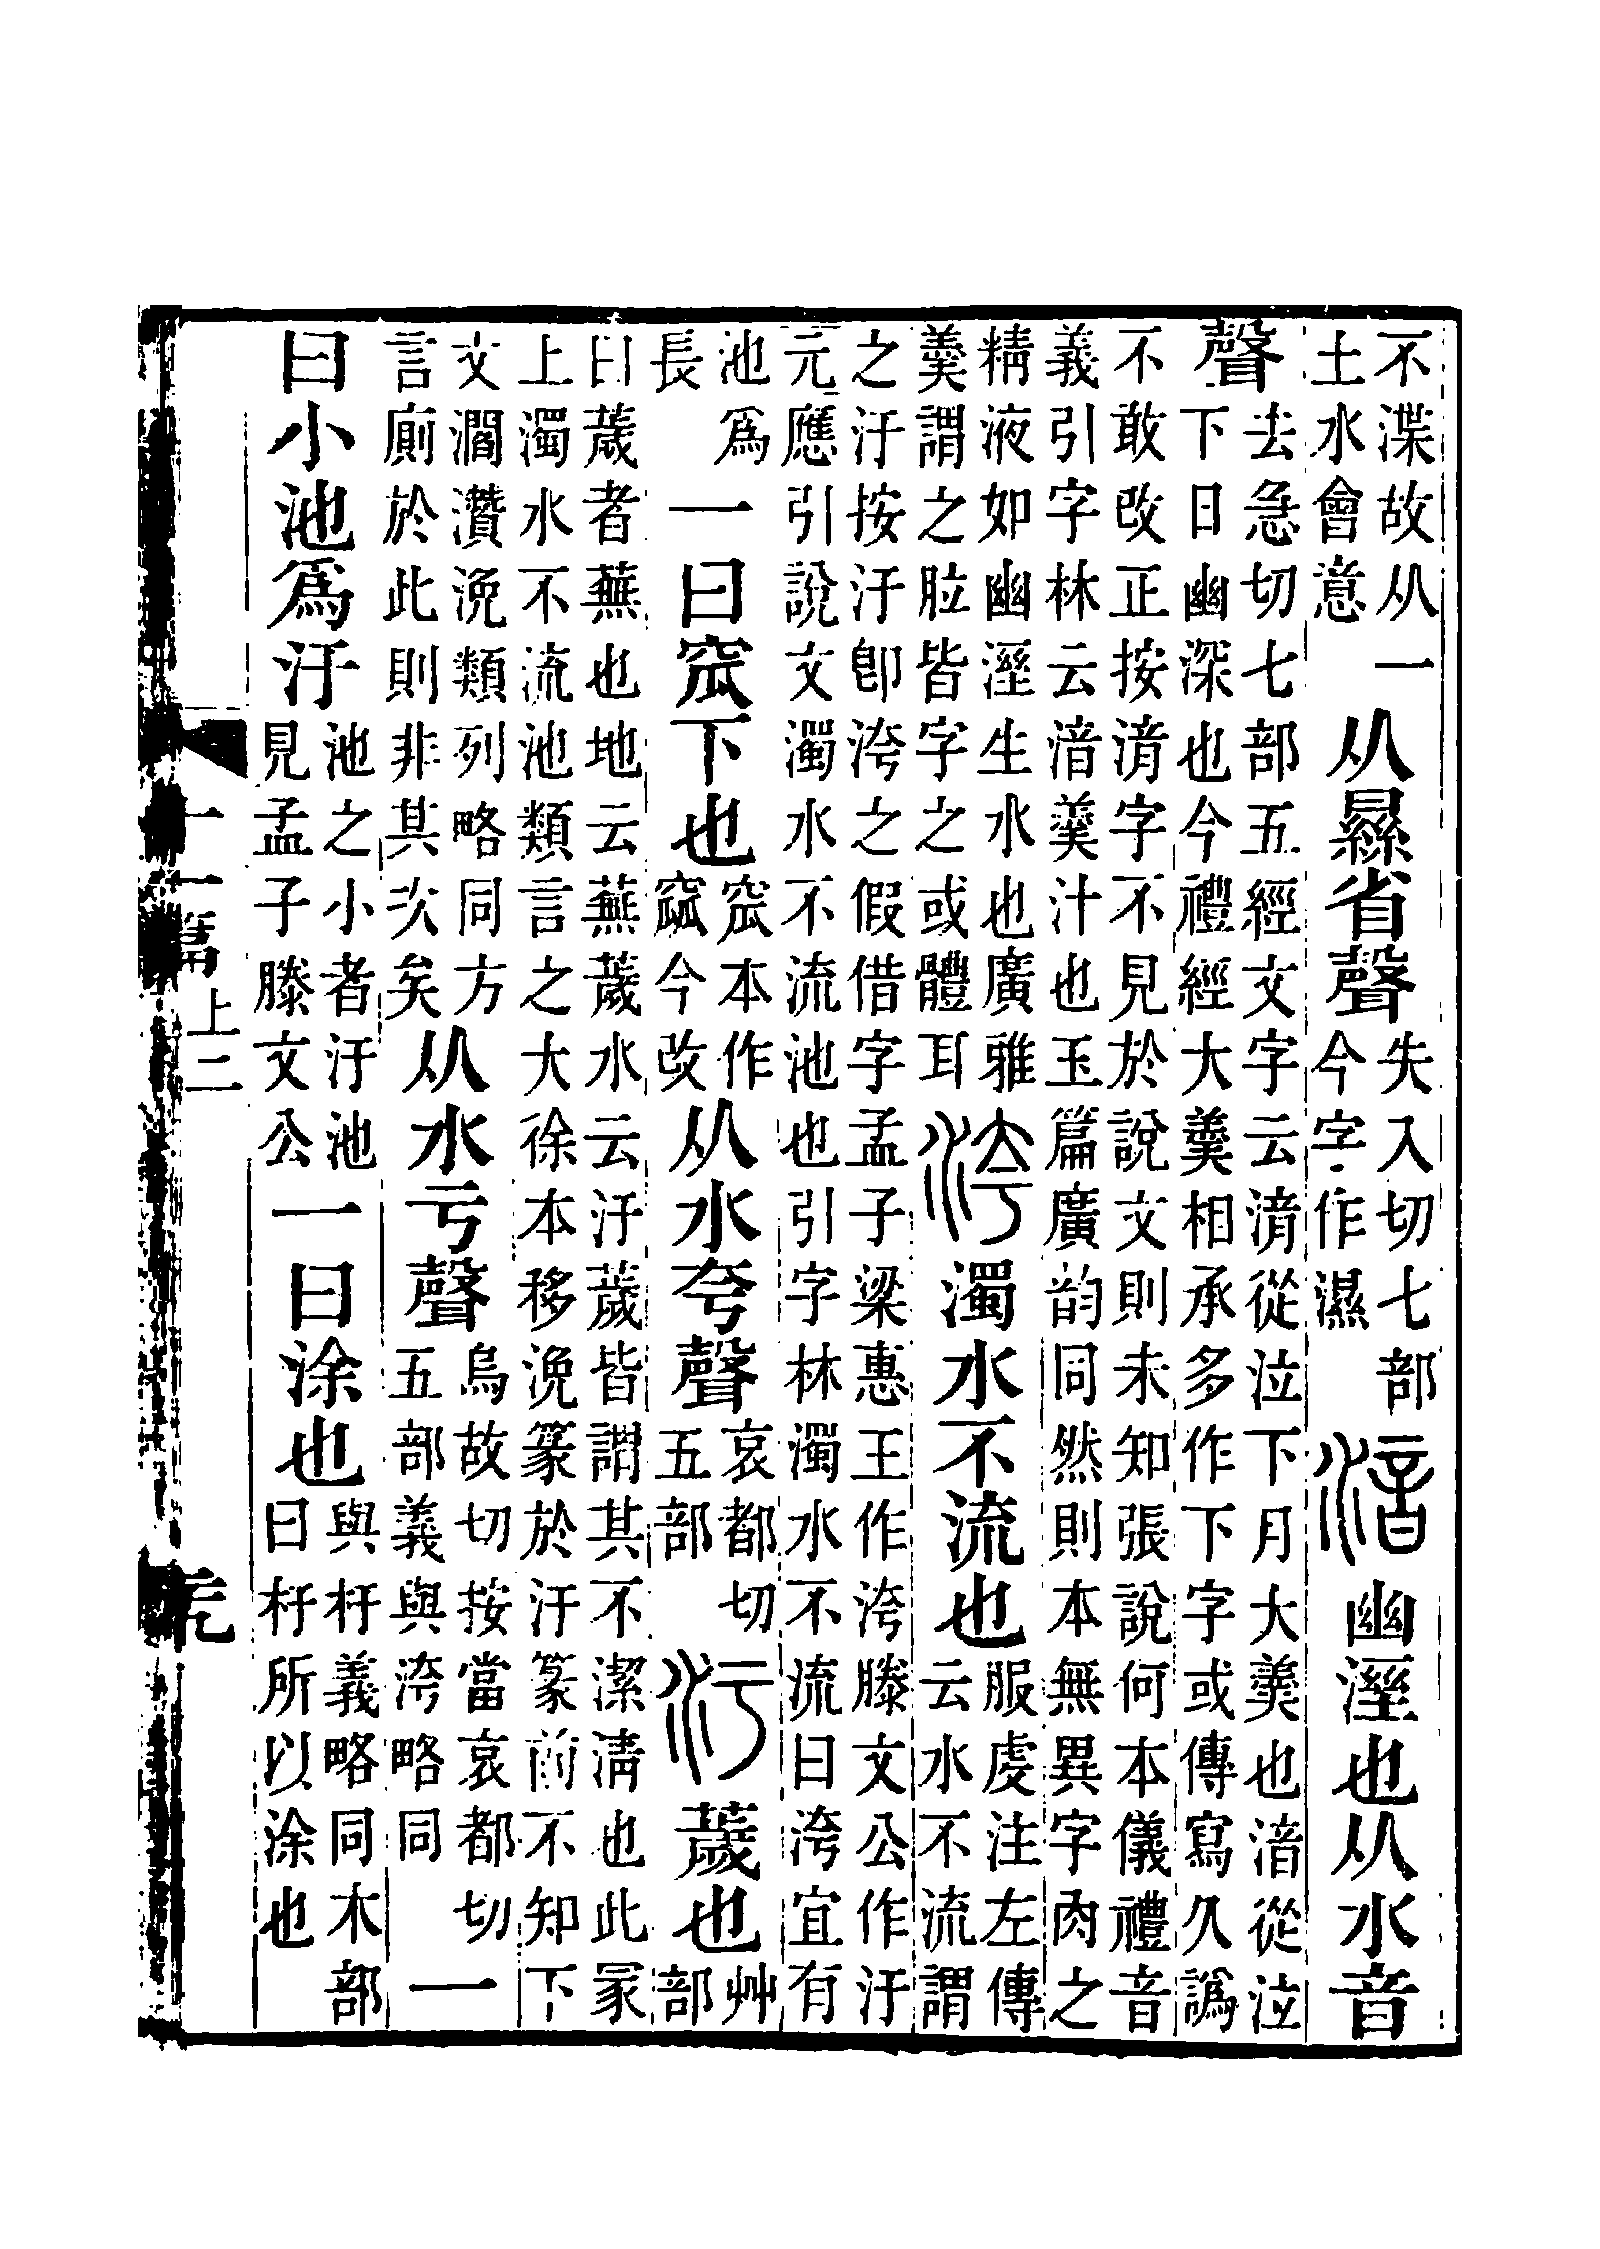 不渫故从一土水會意从㬎省聲失入切七部今字作濕湆幽溼也从水音
聲去急切七部五經文字云湇從泣下月大羹也湆從泣下日幽深也今禮經大羹相承多作下字或傳寫久譌
不敢改正按湇字不見於說文則未知張說何本儀禮音義引字林云湆羹汁也玉篇廣韵同然則本無異字肉之
精液如幽溼生水也廣雅羹謂之䏠皆字之或體耳洿濁水不流也服虔注左傳云水不流謂
之汙按汙卽洿之假借字孟子梁惠王作洿滕文公作汙元應引說文濁水不流池也引字林濁水不流曰洿宜有
池爲長一曰窊下也窊本作窳今改从水夸聲哀都切五部汙薉也艸部
曰薉者蕪也地云蕪薉水云汙薉皆謂其不潔淸也此冡上濁水不流池類言之大徐本移浼篆於汙篆前不知下
文澗灒浼類列略同方言廁於此則非其次矣从水亏聲烏故切按當哀都切五部義與洿略同一
曰小池爲汙池之小者汙池見孟子滕文公一曰涂也與杇義略同木部曰杇所以涂也
十一篇上二